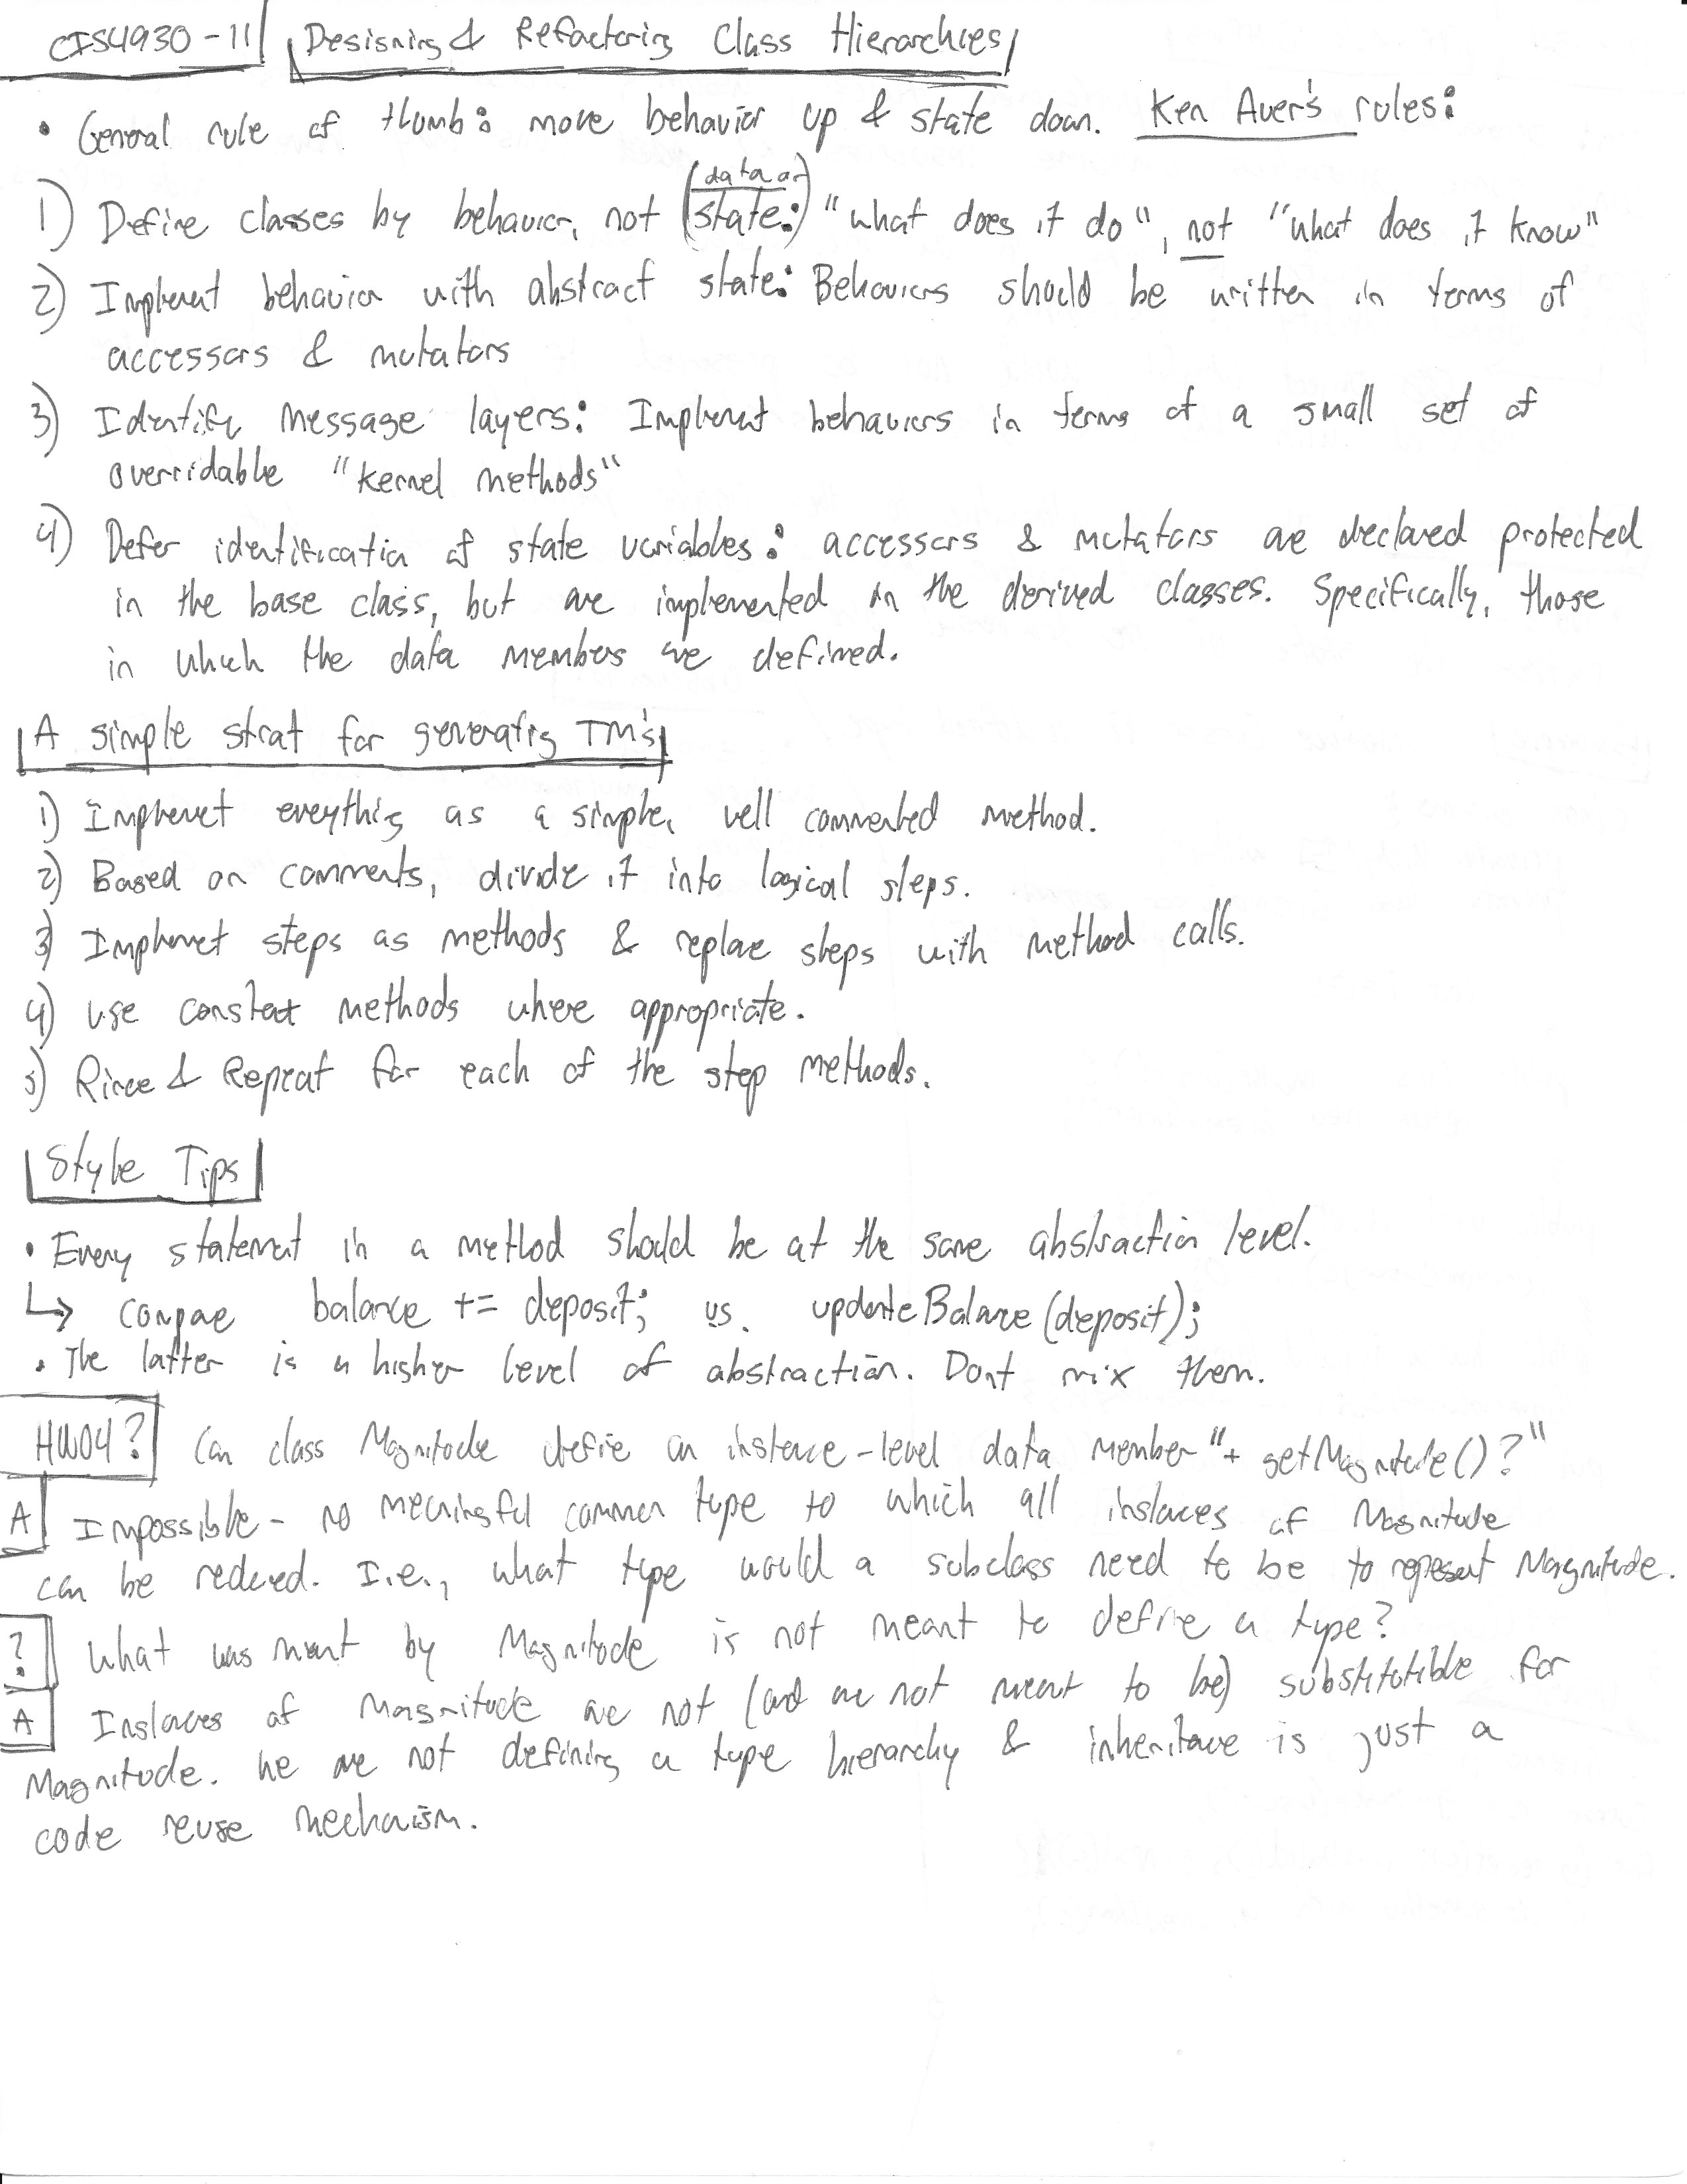 CIS4930-11 Designing & Refactoring Class Hierarchies
• General rule of thumb: move behavior up & state down. Ken Auer's rules:
1) Define classes by behavior, not (data or state:) "what does it do", not "what does it know"
2) Implement behavior with abstract state: Behaviors should be written in terms of
accessors & mutators
3) Identify message layers: Implement behaviors in terms of a small set of
overridable "kernel methods"
4) Defer identification of state variables: accessors & mutators are declared protected
in the base class, but are implemented in the derived classes. Specifically, those
in which the data members are defined.
A simple strat for generating TM's
1) Implement everything as a simple, well commented method.
2) Based on comments, divide it into logical steps.
3) Implement steps as methods & replace steps with method calls.
4) Use constant methods where appropriate.
5) Rince & Repeat for each of the step methods.
Style Tips
• Every statement in a method should be at the same abstraction level.
↳ compare balance += deposit; vs. updateBalance(deposit);
• The latter is a higher level of abstraction. Dont mix them.
HW04? Can class Magnitude define an instance-level data member "+ getMagnitude()?"
A Impossible - no meaningful common type to which all instances of Magnitude
can be reduced. I.e., what type would a subclass need to be to represent Magnitude.
? What was meant by Magnitude is not meant to define a type?
A Instances of Magnitude are not (and are not meant to be) substitutible for
Magnitude. We are not defining a type hierarchy & inheritance is just a
code reuse mechanism.